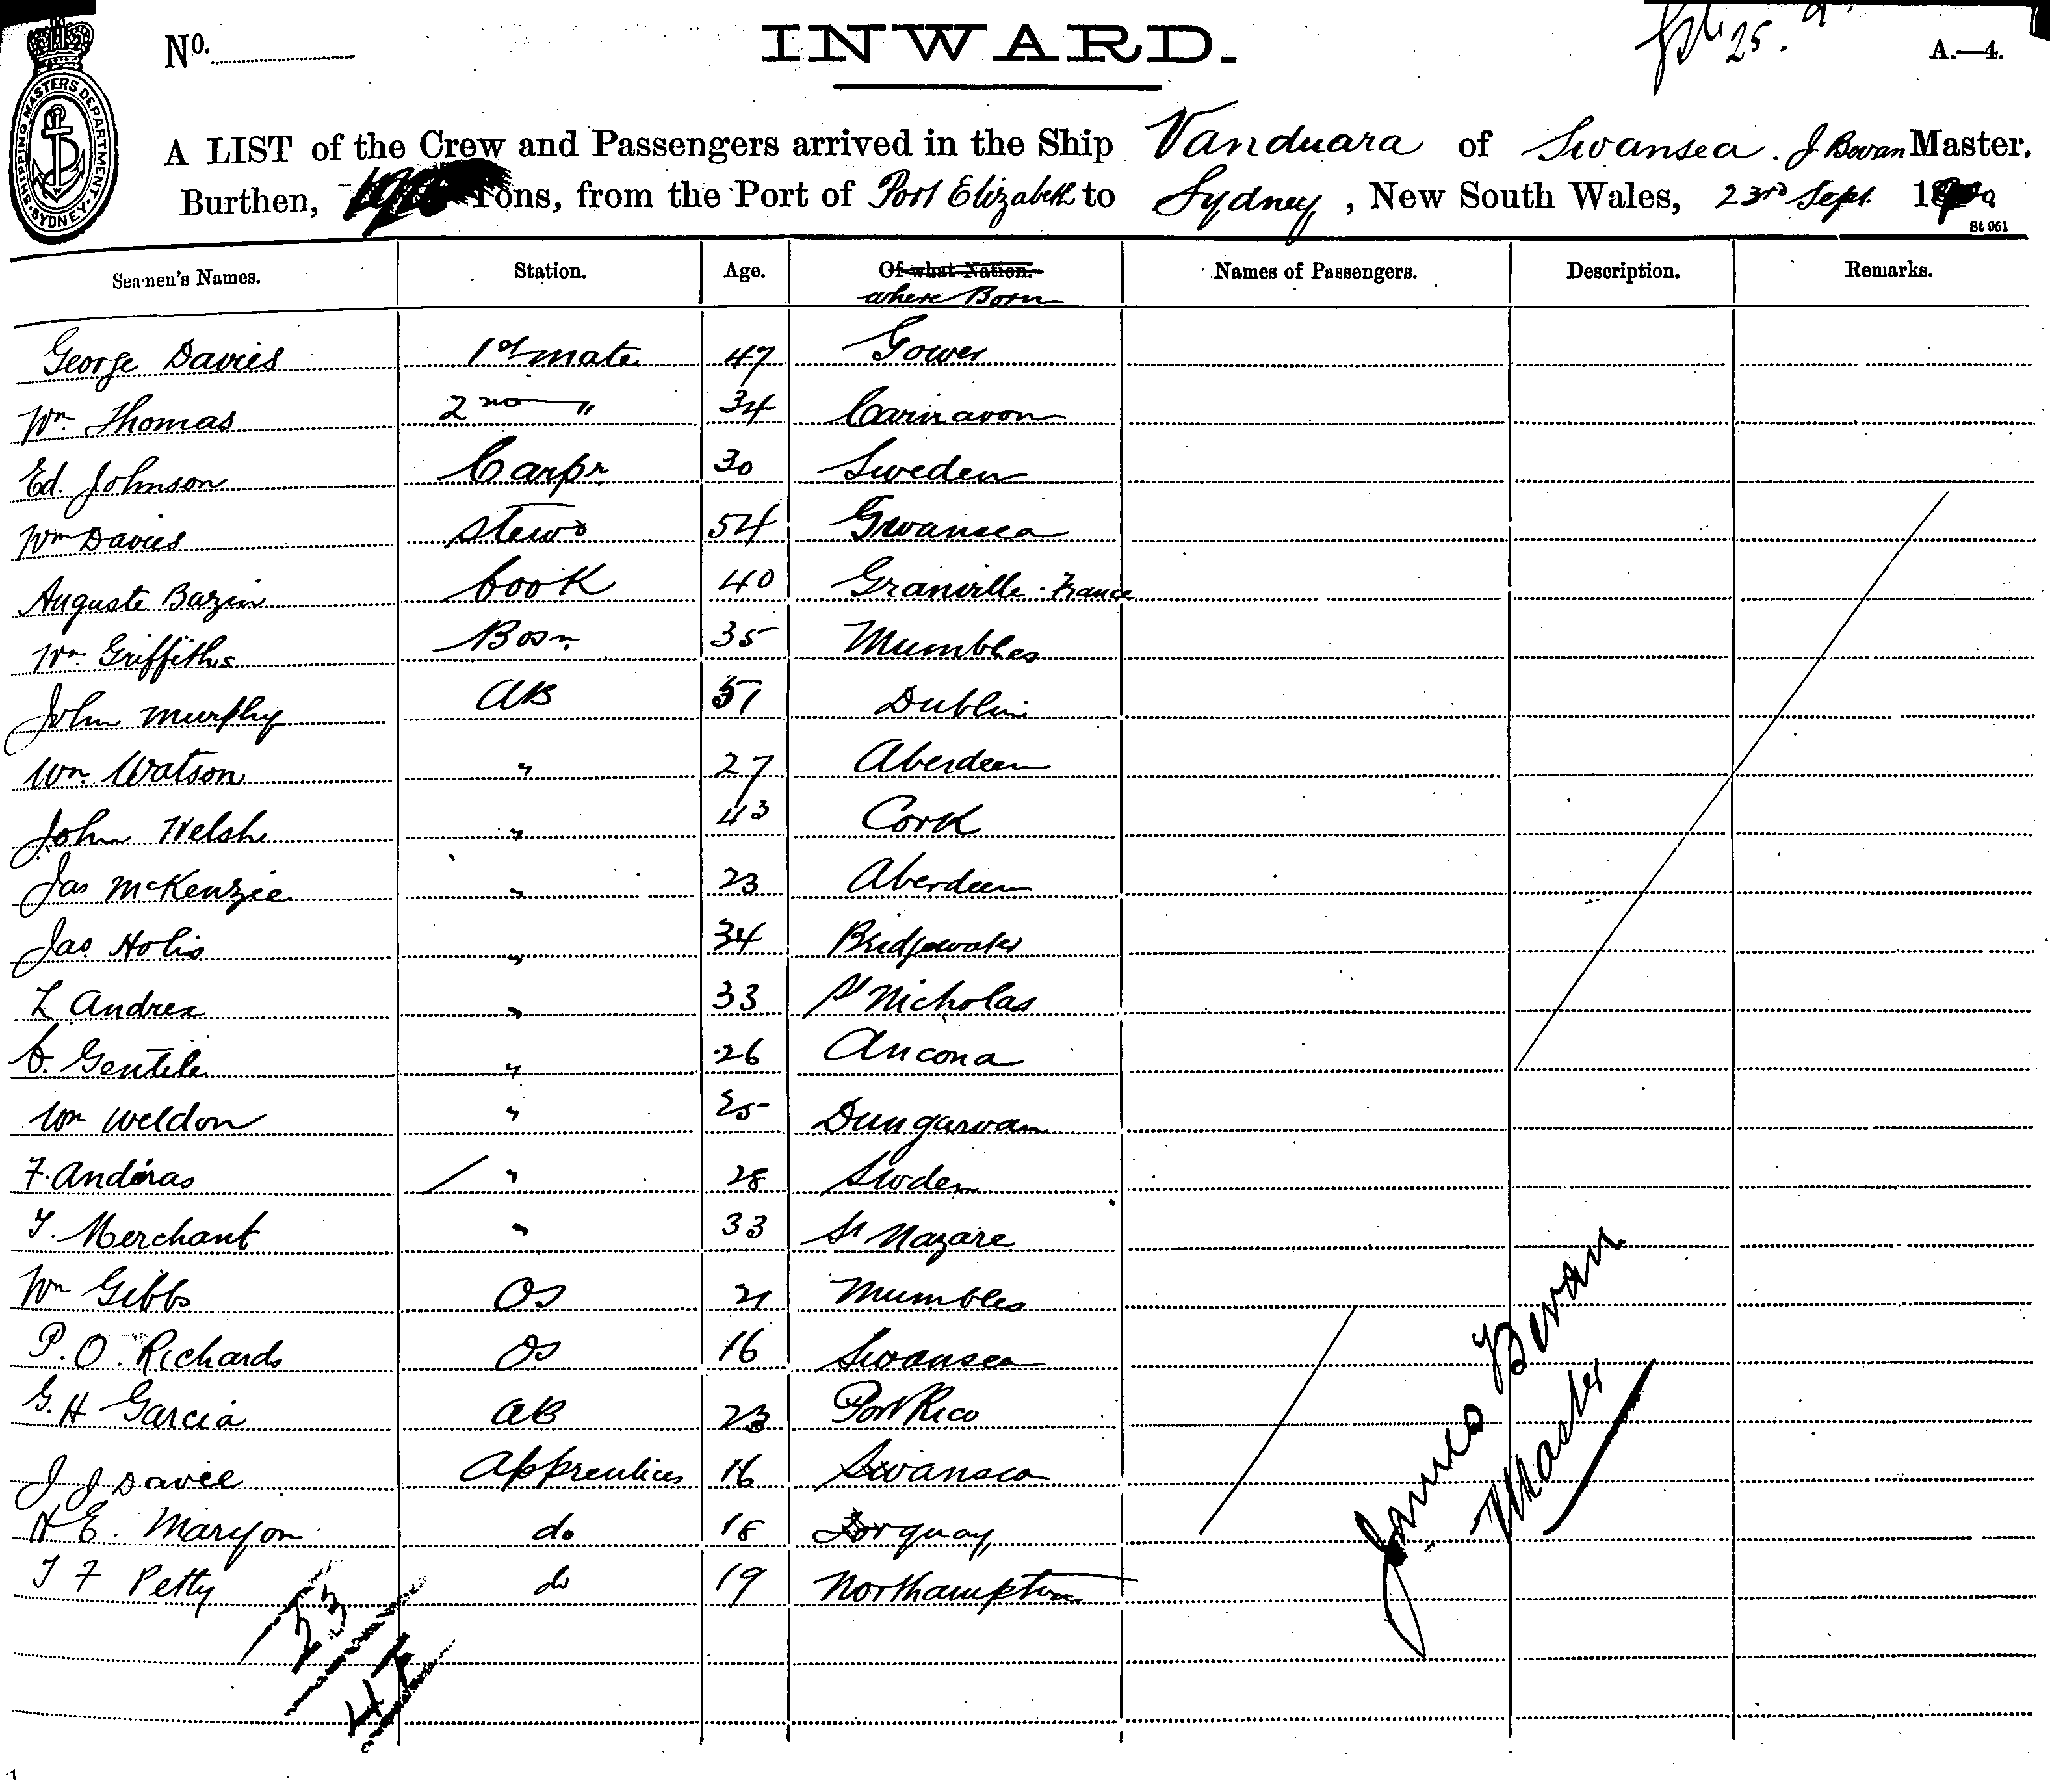 No. INWARD. A.—4.
SHIPPING MASTERS DEPARTMENT SYDNEY
A LIST of the Crew and Passengers arrived in the Ship Vanduara of Swansea. J Bevan Master.
Burthen, Tons, from the Port of Port Elizabeth to Sydney, New South Wales, 23rd Sept
St 061
Seamen's Names. Station. Age. Of what Nation. Names of Passengers. Description. Remarks.
where Born
George Davies 1st mate 47 Gower
Wm Thomas 2nd " 34 Carnavon
Ed. Johnson Carpr 30 Sweden
Wm Davies Stewd 54 Swansea
Auguste Bazin Cook 40 Granville. France
Wm Griffiths Bosn 35 Mumbles
John Murphy AB 51 Dublin
Wm Watson " 27 Aberdeen
John Welsh " 43 Cork
Jas McKenzie " 23 Aberdeen
Jas Holis " 34 Bridgewater
L Andrea " 33 St Nicholas
C. Gentile " 26 Ancona
Wm Weldon " 25 Dungarvan
F. Andras " 28 Sweden
T. Merchant " 33 St Nazare
Wm Gibbs OS 21 Mumbles
P. O. Richards OS 16 Swansea
G. H Garcia AB 23 Port Rico
J J Davie Apprentices 16 Swansea
H E. Maryon do 18 Torquay
T F Petty do 19 Northampton
23
James Bevan
Master